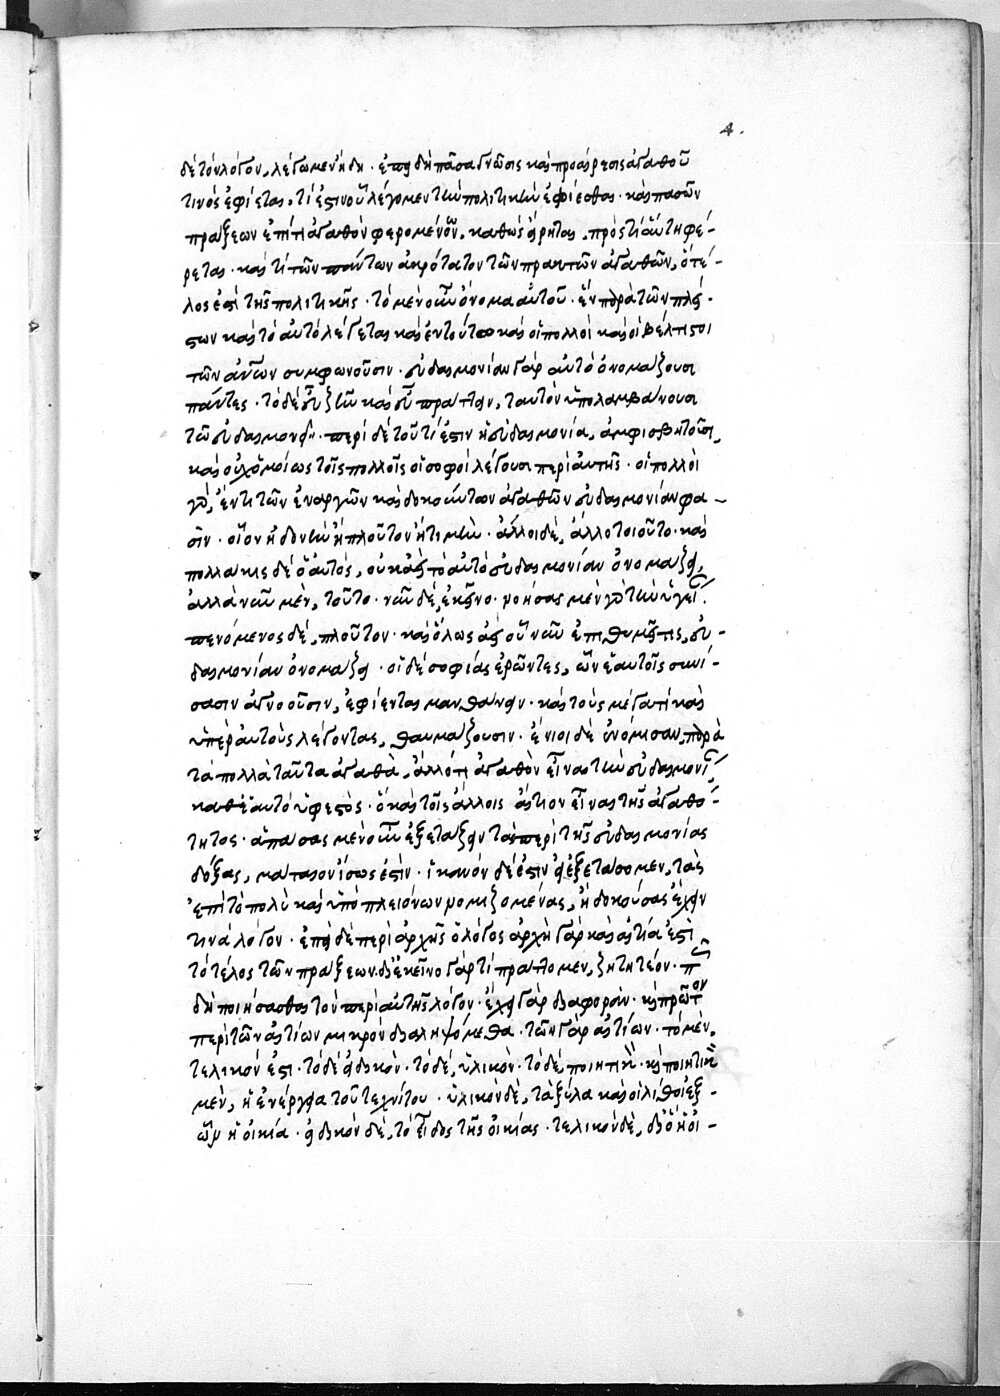 4.
δὲ τὸν λόγον, λέγωμεν ἤδη· ἐπεὶ δὴ πᾶσα γνῶσις καὶ προαίρεσις ἀγαθοῦ
τινὸς ἐφίεται, τί ἐστιν οὗ λέγομεν τὴν πολιτικὴν ἐφίεσθαι· καὶ πασῶν
πράξεων ἐπί τι ἀγαθὸν φερομένων, καθὼς εἴρηται, πρὸς τί αὕτη φέ-
ρεται· καὶ τί τῶν πάντων ἀκρότατον τῶν πρακτῶν ἀγαθῶν, ὁ τέ-
λος ἐστὶ τῆς πολιτικῆς· τὸ μὲν οὖν ὄνομα αὐτοῦ· ἓν παρὰ τῶν πλεί-
στων καὶ τὸ αὐτὸ λέγεται καὶ ἐν τούτω καὶ οἱ πολλοὶ καὶ οἱ βέλτιστοι
τῶν ἀνων συμφωνοῦσιν· εὐδαιμονίαν γὰρ αὐτὸ ὀνομάζουσι
πάντες· τὸ δὲ εὖ ζῆν καὶ εὖ πράττειν, ταυτὸν ὑπολαμβάνουσι
τῶ εὐδαιμονεῖν· περὶ δὲ τοῦ τί ἐστιν ἡ εὐδαιμονία, ἀμφισβητοῦσι,
καὶ οὐχ ὁμοίως τοῖς πολλοῖς οἱ σοφοὶ λέγουσι περὶ αὐτῆς· οἱ πολλοὶ
γὰρ, ἕν τι τῶν ἐναργῶν καὶ δοκούντων ἀγαθῶν εὐδαιμονίαν φα-
σὶν· οἷον ἡδονὴν ἢ πλοῦτον ἢ τιμὴν· ἄλλοι δὲ, ἄλλο τοιοῦτο· καὶ
πολλάκις δὲ ὁ αὐτὸς, οὐκ ἀεὶ τὸ αὐτὸ εὐδαιμονίαν ὀνομάζει,
ἀλλὰ νῦν μὲν, τοῦτο· νῦν δὲ, ἐκεῖνο· νοσήσας μὲν γὰρ τὴν ὑγεί.
πενόμενος δὲ, πλοῦτον· καὶ ὅλως ἀεὶ οὗ νῦν ἐπιθυμεῖ τις, εὐ-
δαιμονίαν ὀνομάζει· οἱ δὲ σοφίας ἐρῶντες, ὧν ἑαυτοῖς συνί-
σασιν ἀγνοοῦσιν, ἐφίενται μανθάνειν· καὶ τοὺς μέγα τι καὶ
ὑπὲρ αὐτοὺς λέγοντας, θαυμάζουσιν· ἔνιοι δὲ ἐνόμισαν, παρὰ
τὰ πολλὰ ταῦτα ἀγαθὰ, ἄλλό τι ἀγαθὸν εἶναι τὴν εὐδαιμονί
καθ' ἑαυτὸ ὑφεστὸς· ὃ καὶ τοῖς ἄλλοις αἴτιον εἶναι τῆς ἀγαθό-
τητος· ἁπάσας μὲν οὖν ἐξετάζειν τὰς περὶ τῆς εὐδαιμονίας
δόξας, μάταιον ἴσως ἐστὶν· ἱκανὸν δέ ἐστιν εἰ ἐξετάσομεν, τὰς
ἐπὶ τὸ πολὺ καὶ ὑπὸ πλειόνων νομιζομένας, ἢ δοκούσας ἔχειν
τινὰ λόγον· ἐπεὶ δὲ περὶ ἀρχῆς ὁ λόγος ἀρχὴ γὰρ καὶ αἰτία ἐστὶ
τὸ τέλος τῶν πράξεων. δι' ἐκεῖνο γάρ τι πράττομεν, ζητητέον· πῶς
δεῖ ποιήσασθαι τὸν περὶ αὐτῆς λόγον· ἔχει γὰρ διαφορὰν· καὶ πρῶτον
περὶ τῶν αἰτίων μικρὸν διαληψόμεθα· τῶν γὰρ αἰτίων· τὸ μὲν,
τελικόν ἐστι· τὸ δὲ εἰδικὸν· τὸ δὲ, ὑλικὸν· τὸ δὲ, ποιητικὸν· καὶ ποιητικὸν
μὲν, ἡ ἐνέργεια τοῦ τεχνίτου· ὑλικὸν δὲ, τὰ ξύλα καὶ οἱ λίθοι ἐξ-
ὧν ἡ οἰκία· εἰδικὸν δὲ, τὸ εἶδος τῆς οἰκίας· τελικὸν δὲ, δι' ὃ ἡ οἰ-